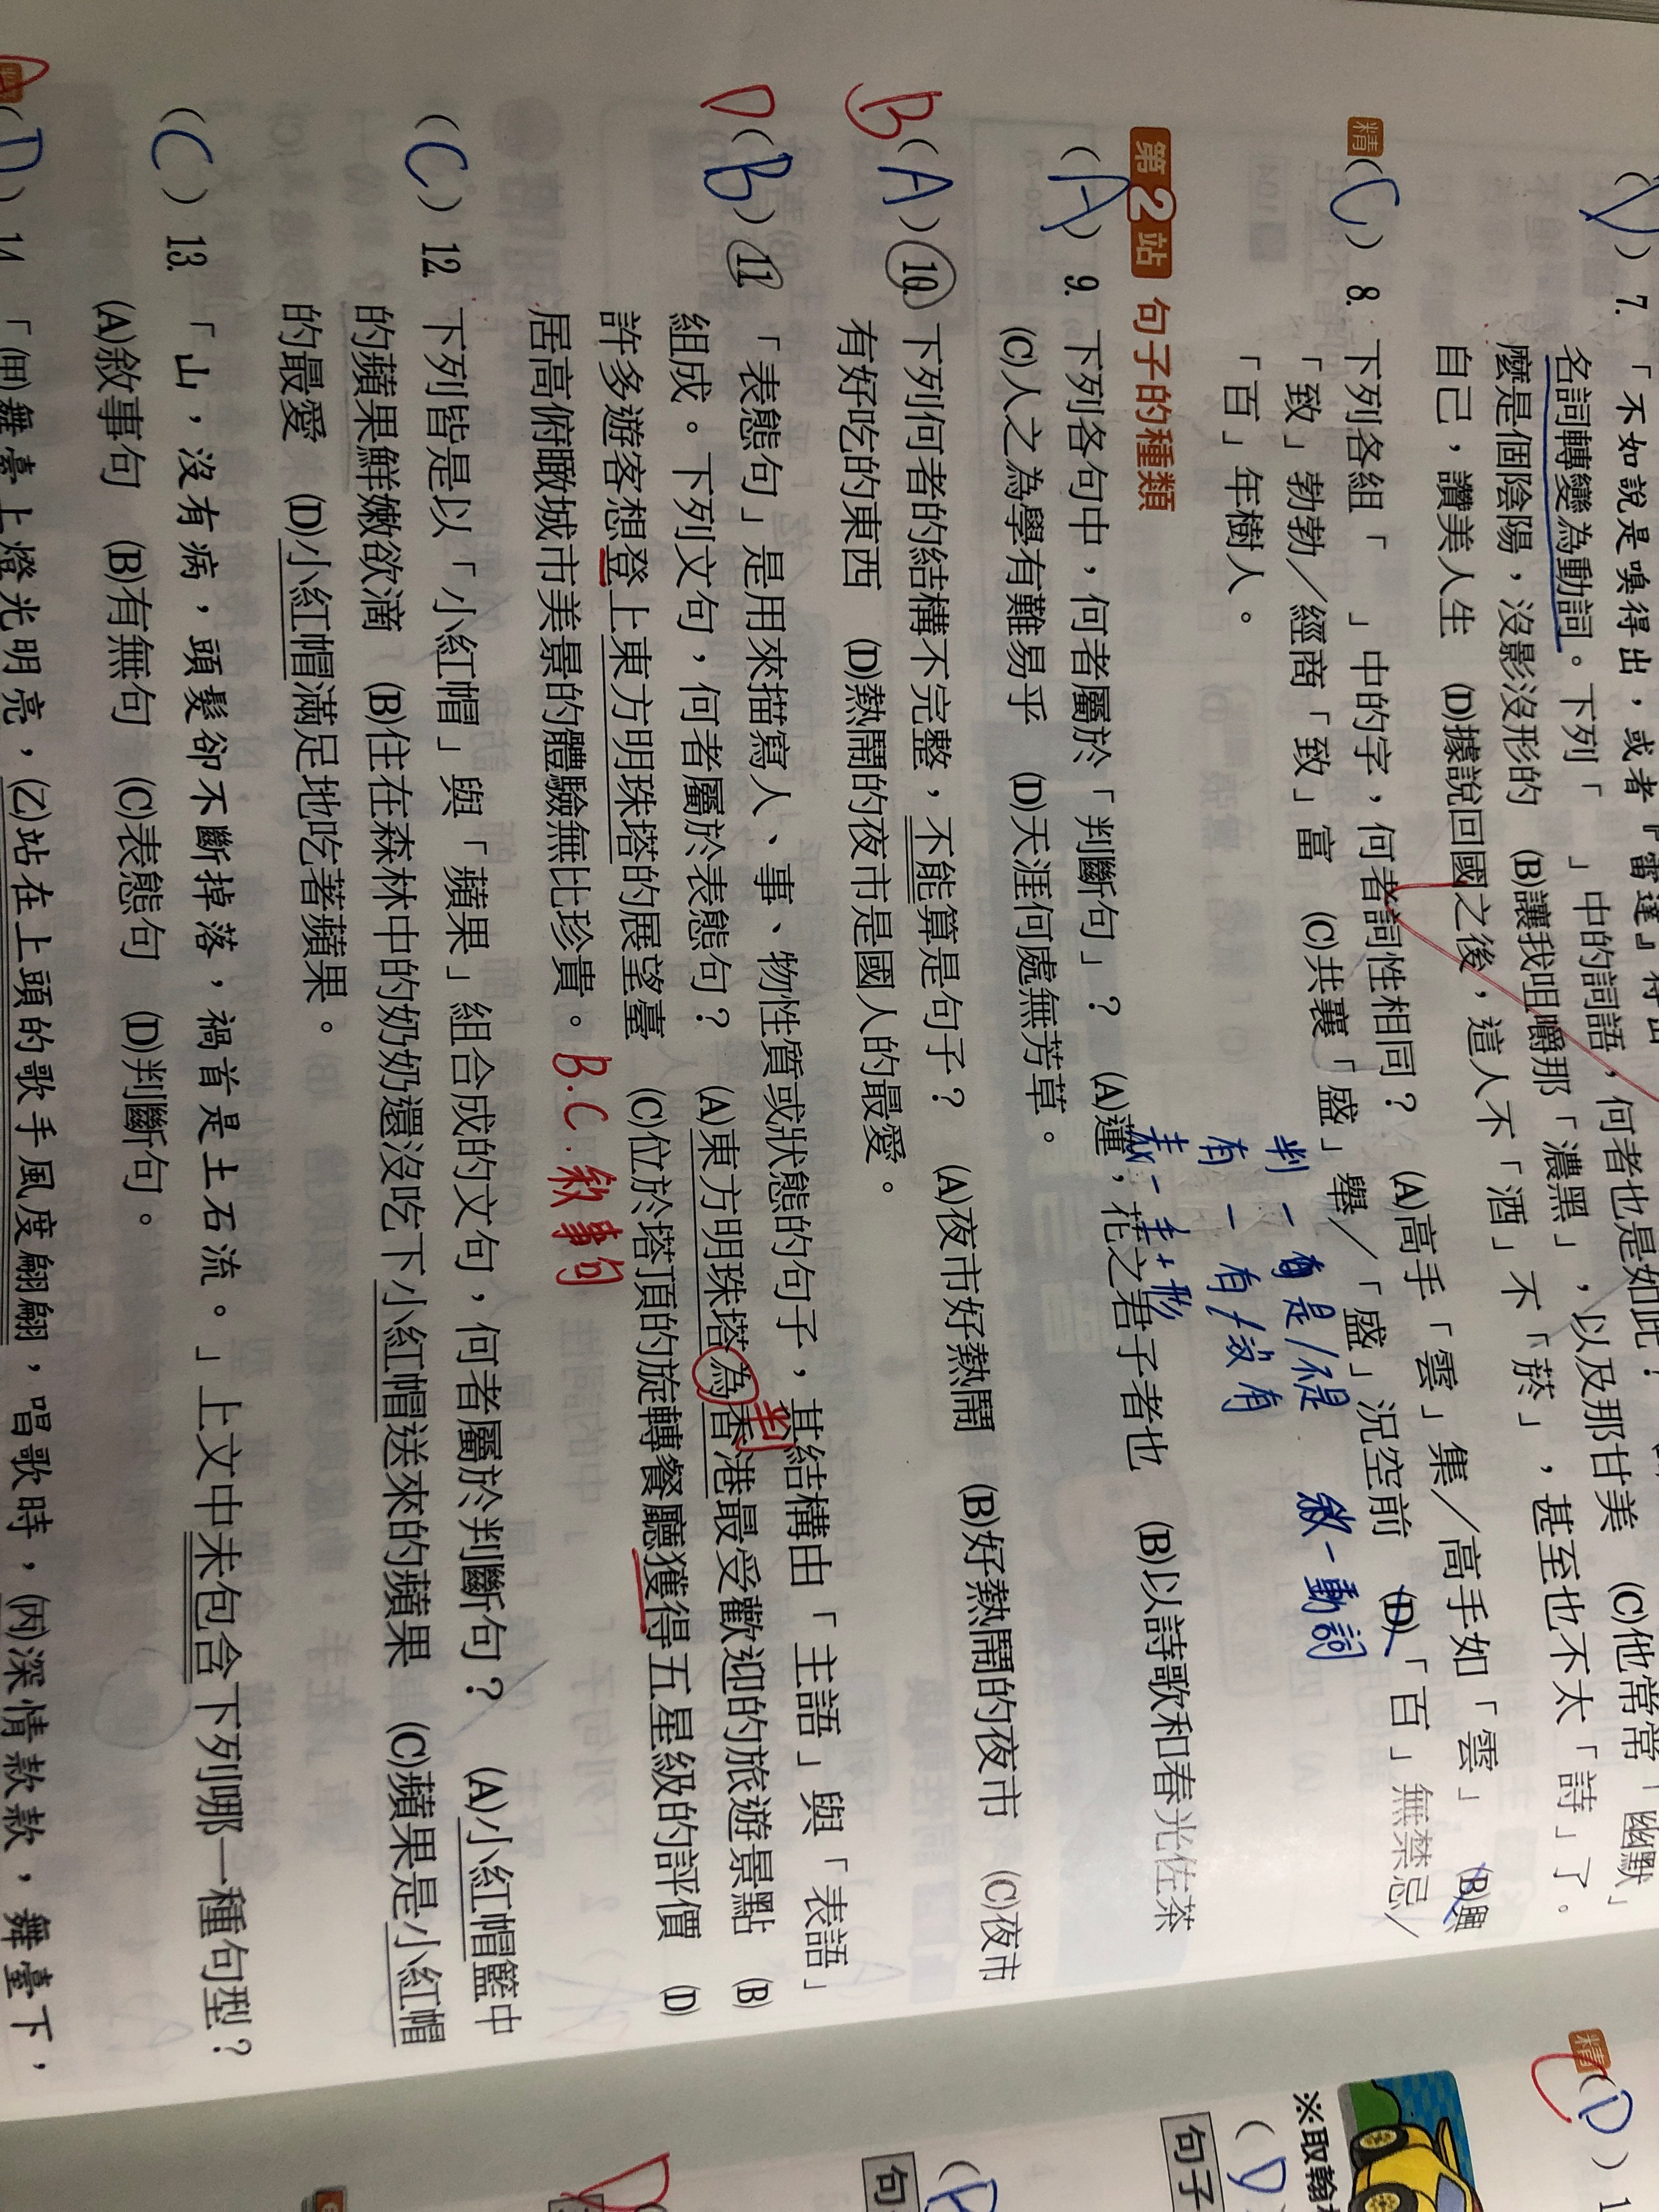 7. 「不如說是嗅得出，或者『雷達』得出
名詞轉變為動詞。下列「　」中的詞語，何者也是如此？
麼是個陰陽，沒影沒形的　(B)讓我咀嚼那「濃黑」，以及那甘美　(C)他常常「幽默」
自己，讚美人生　(D)據說回國之後，這人不「酒」不「菸」，甚至也不太「詩」了。
精(C) 8. 下列各組「　」中的字，何者詞性相同？　(A)高手「雲」集／高手如「雲」　(B)興
「致」勃勃／經商「致」富　(C)共襄「盛」舉／「盛」況空前　(D)「百」無禁忌／
「百」年樹人。
判－是/不是　敘－動詞
有－有/沒有
表－主+形
第2站 句子的種類
(A) 9. 下列各句中，何者屬於「判斷句」？　(A)蓮，花之君子者也　(B)以詩歌和春光佐茶
(C)人之為學有難易乎　(D)天涯何處無芳草。
B(A) 10. 下列何者的結構不完整，不能算是句子？　(A)夜市好熱鬧　(B)好熱鬧的夜市　(C)夜市
有好吃的東西　(D)熱鬧的夜市是國人的最愛。
D(B) 11. 「表態句」是用來描寫人、事、物性質或狀態的句子，其結構由「主語」與「表語」
組成。下列文句，何者屬於表態句？　(A)東方明珠塔為香港最受歡迎的旅遊景點　(B)
判
許多遊客想登上東方明珠塔的展望臺　(C)位於塔頂的旋轉餐廳獲得五星級的評價　(D)
居高俯瞰城市美景的體驗無比珍貴。 B.C.敘事句
(C) 12. 下列皆是以「小紅帽」與「蘋果」組合成的文句，何者屬於判斷句？　(A)小紅帽籃中
的蘋果鮮嫩欲滴　(B)住在森林中的奶奶還沒吃下小紅帽送來的蘋果　(C)蘋果是小紅帽
的最愛　(D)小紅帽滿足地吃著蘋果。
(C) 13. 「山，沒有病，頭髮卻不斷掉落，禍首是土石流。」上文中未包含下列哪一種句型？
(A)敘事句　(B)有無句　(C)表態句　(D)判斷句。
(D) 14. 「(甲)舞臺上燈光明亮，(乙)站在上頭的歌手風度翩翩，唱歌時，(丙)深情款款，舞臺下，
精(D) 1
※取
(D
句子
(D
句